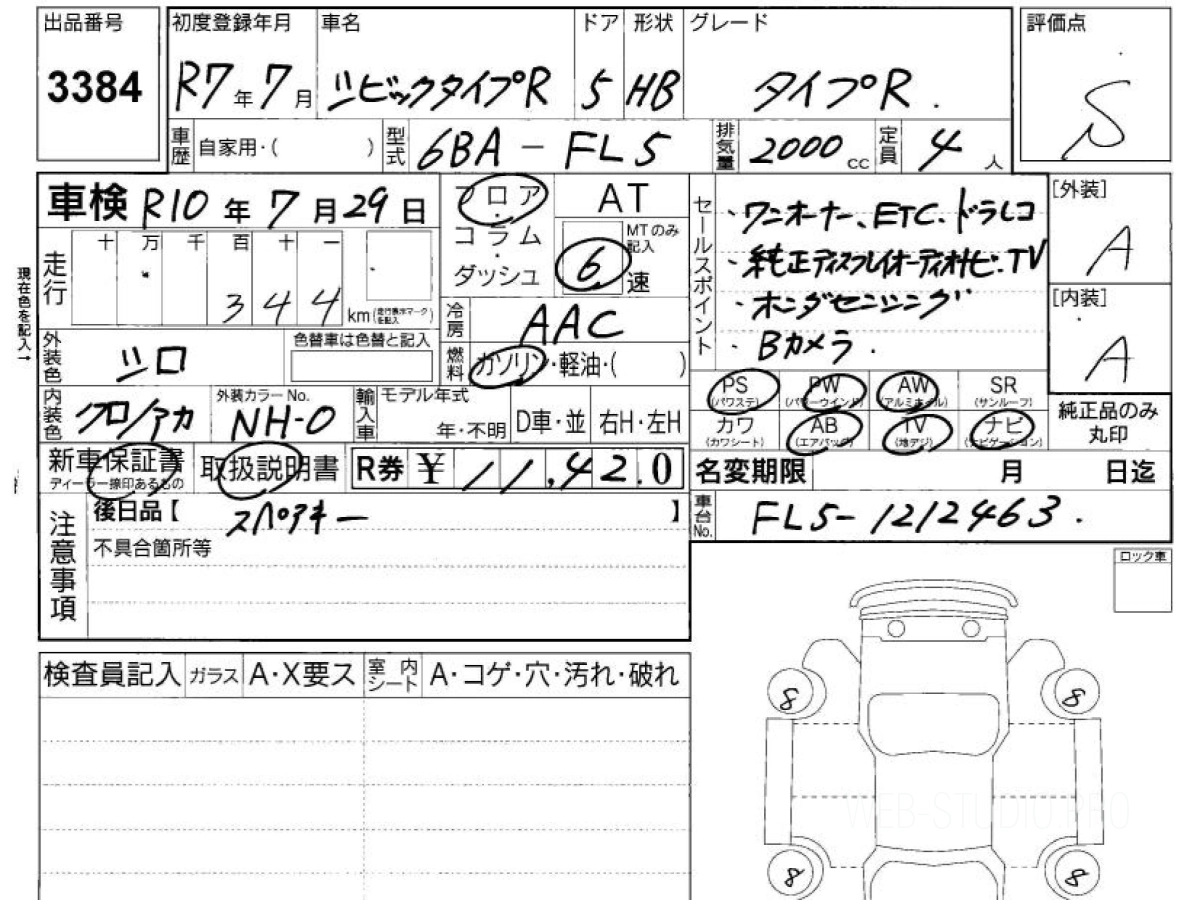 出品番号
3384
初度登録年月 車名 ドア 形状 グレード
R7年7月 シビックタイプR 5 HB タイプR.
評価点
S
車歴 自家用・( ) 型式 6BA-FL5 排気量 2000cc 定員 4人
車検 R10年7月29日
フロア・コラム・ダッシュ
AT
MTのみ記入
6速
セールスポイント
・ワンオーナー、ETC.ドラレコ
・純正ディスプレイオーディオナビ.TV
・ホンダセンシング
・Bカメラ.
[外装]
A
[内装]
A
純正品のみ丸印
現在色を記入→
走行 十 万 千 百 十 一
344 km(走行表示マークを記入)
冷房 AAC
燃料 ガソリン・軽油・( )
外装色 シロ 色替車は色替と記入
内装色 クロ/アカ 外装カラーNo. NH-0
輸入車 モデル年式 年・不明 D車・並 右H・左H
PS (パワステ) PW (パワーウインド) AW (アルミホイル) SR (サンルーフ)
カワ (カワシート) AB (エアバッグ) TV (地デジ) ナビ (ナビゲーション)
新車保証書 ディーラー捺印あるもの 取扱説明書 R券 ¥11,420
名変期限 月 日迄
車台No. FL5-1212463.
注意事項
後日品【 スペアキー 】
不具合箇所等
ロック車
検査員記入 ガラス A・X要ス 室内シート A・コゲ・穴・汚れ・破れ
8 8
8 8
WEB-STUDIO.PRO